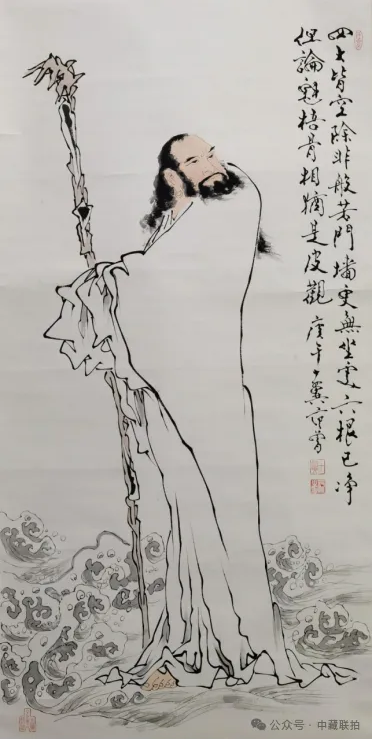 四大皆空除非般若門墻更無坐處六根已净
但論魁梧骨相猶是皮觀 庚午 冀 范曾
公众号 · 中藏联拍